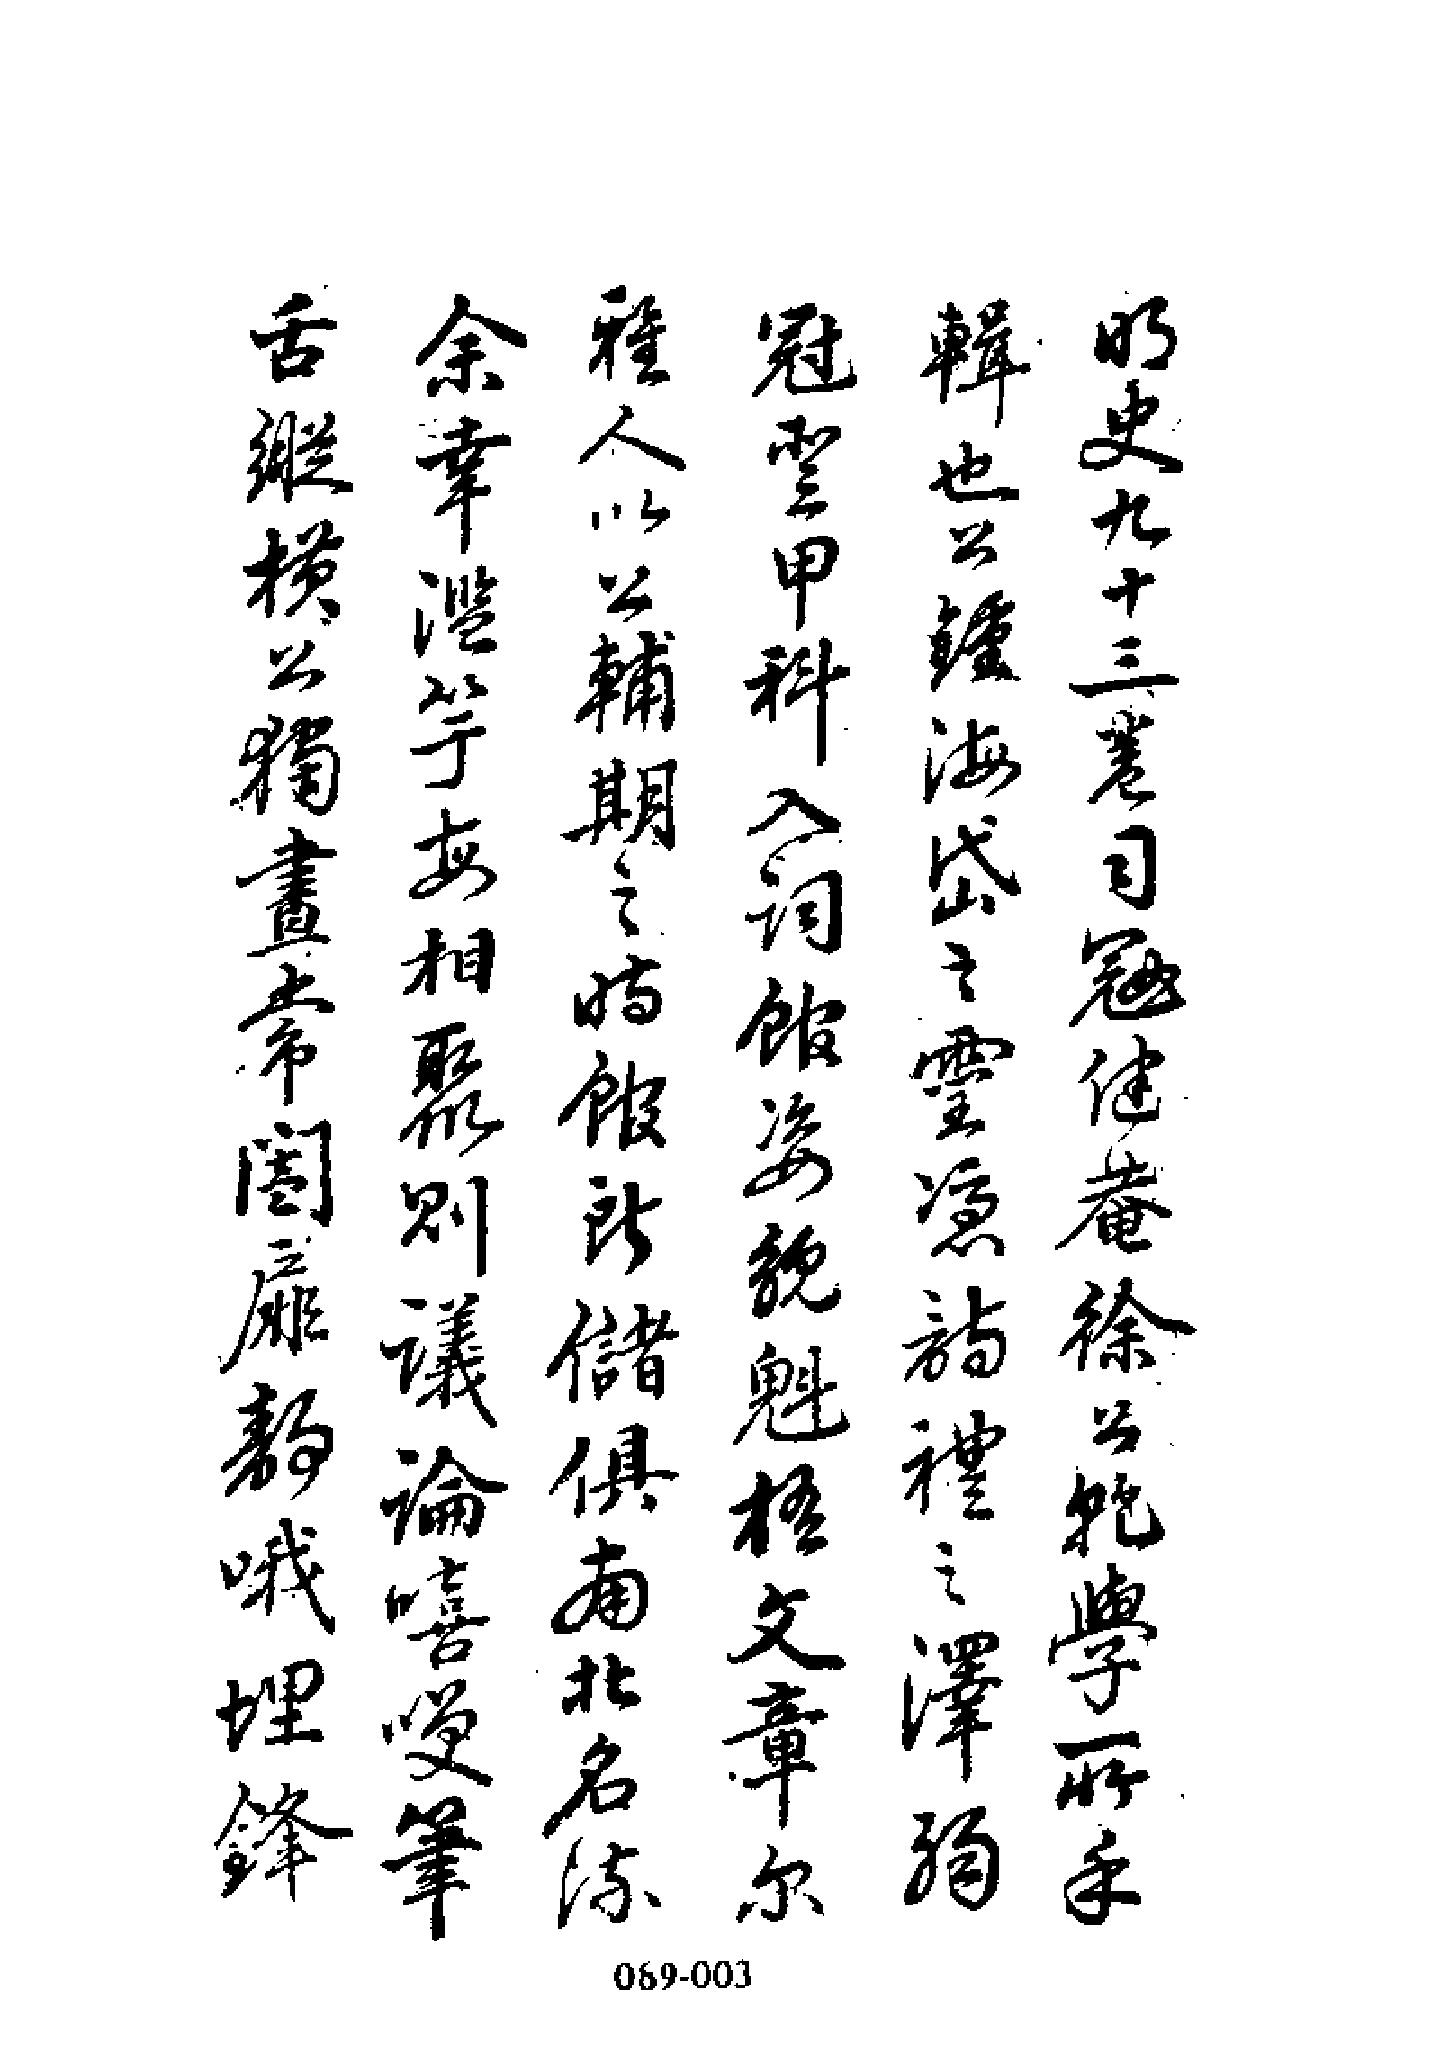 明史九十三卷司寇健菴徐公乾學所手
輯也公鍾海岱之靈憑詩禮之澤弱
冠登甲科入詞館姿貌魁梧文章尔
雅人以公輔期之時館所儲俱南北名流
余幸濫竽每相聚則議論嘻嗖筆
舌縱橫公獨晝常闔扉靜哦埋鋒
069-003